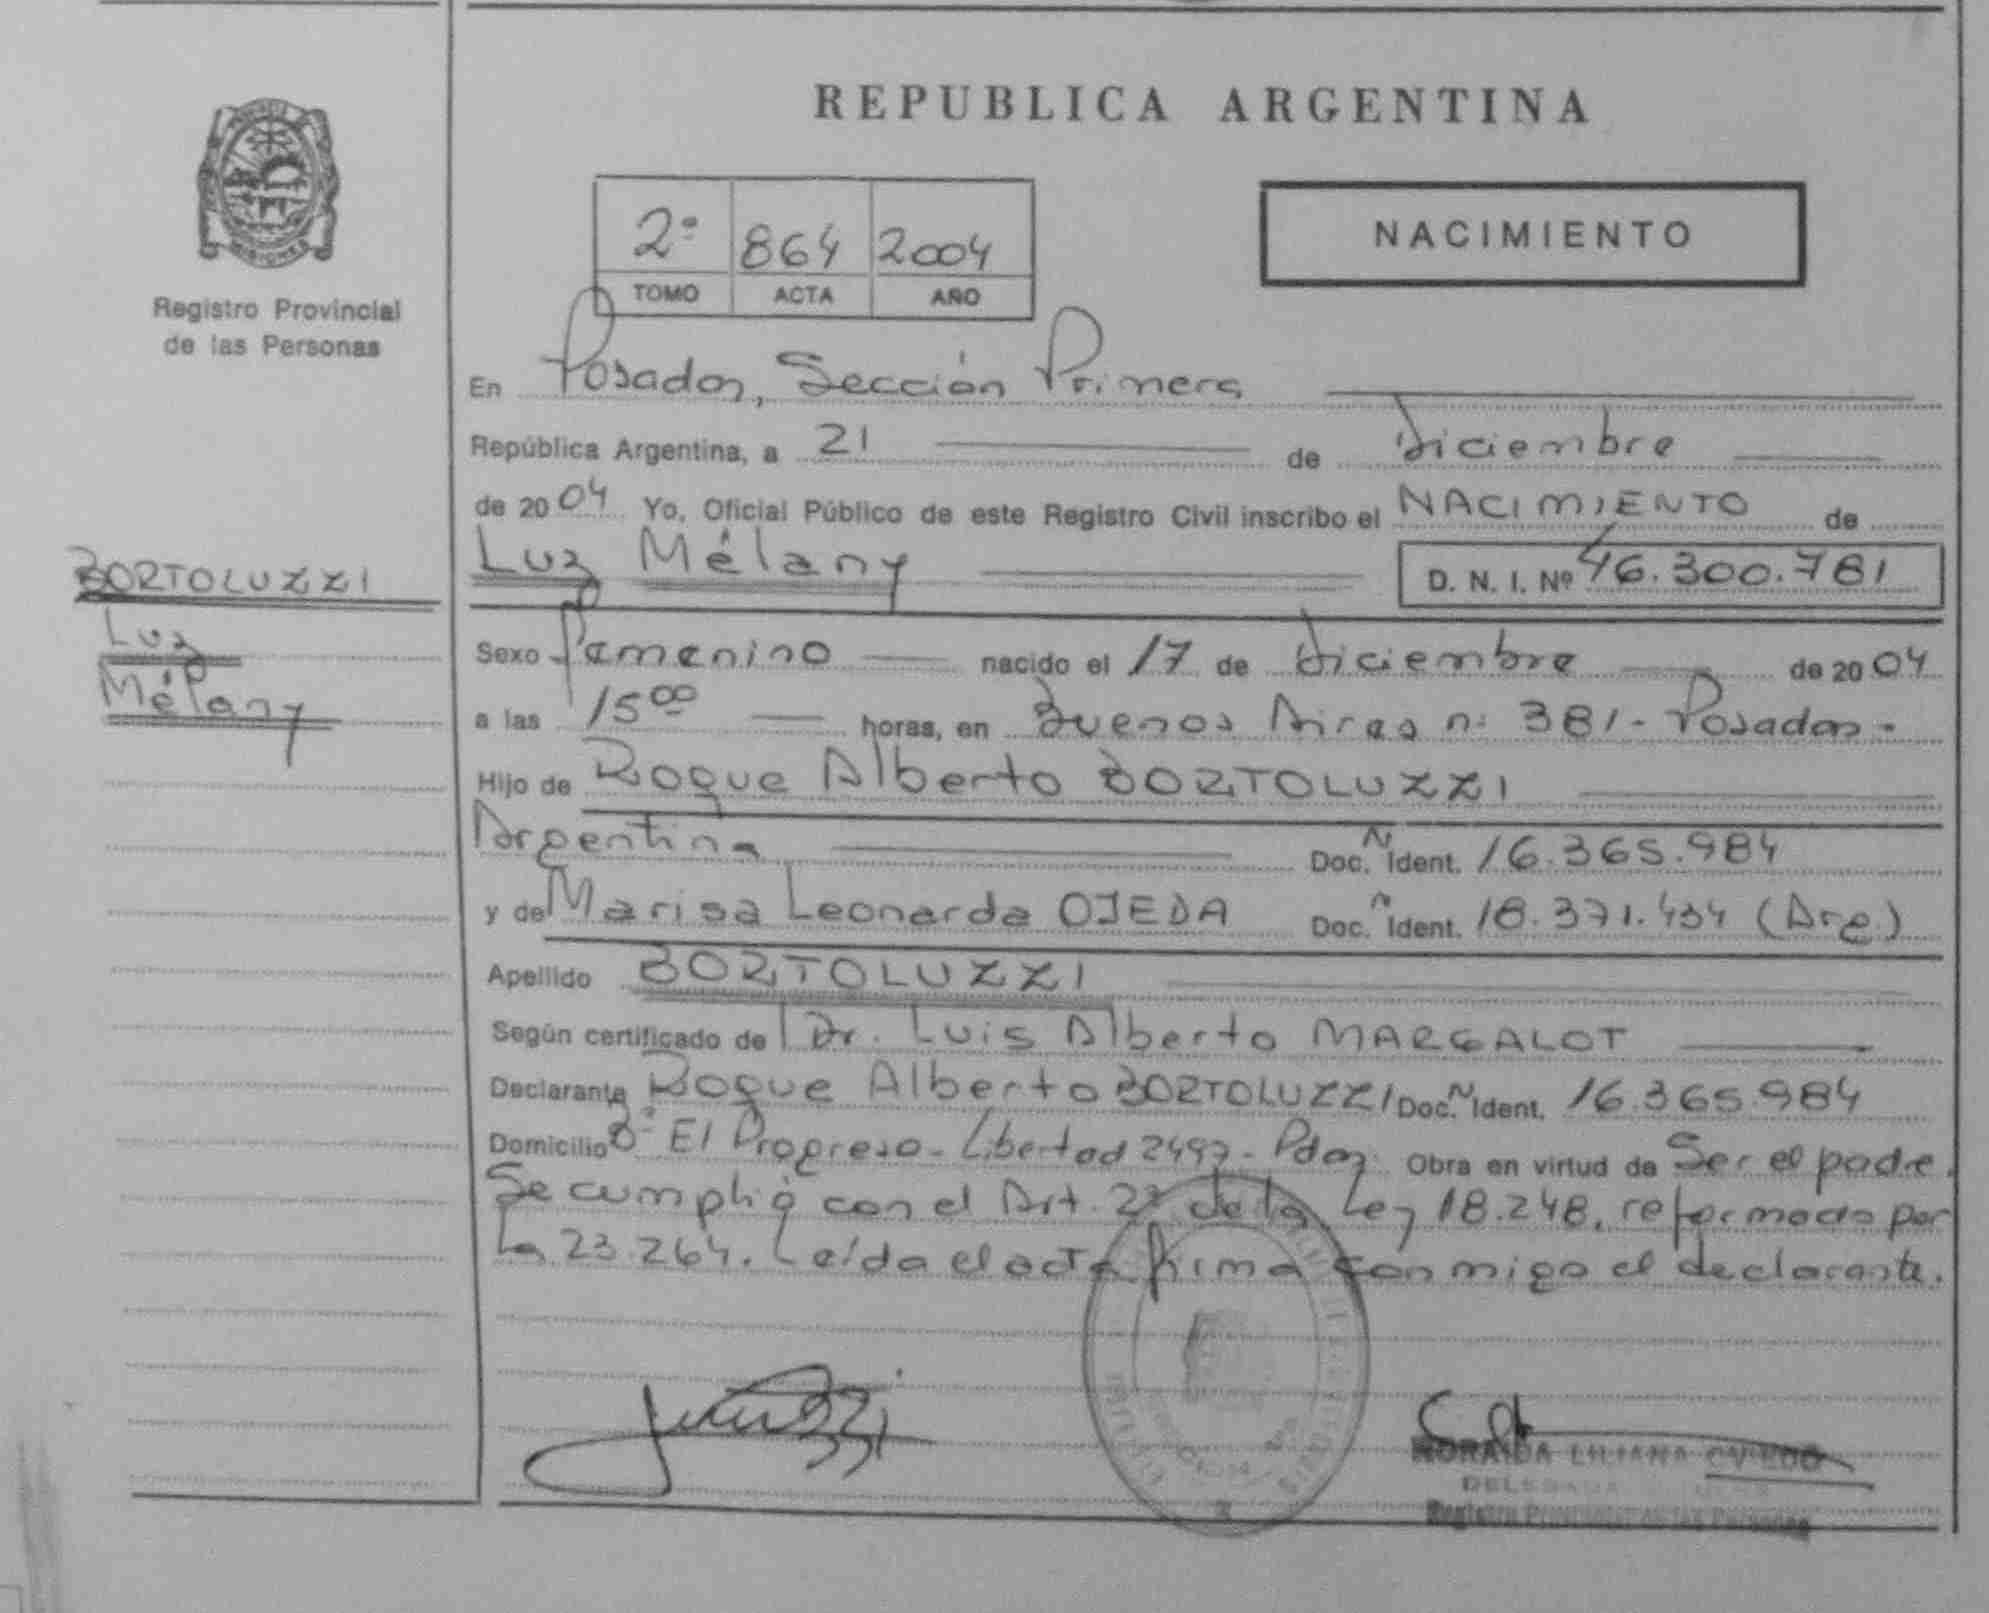 REPUBLICA ARGENTINA
MISIONES
Registro Provincial
de las Personas
2º 864 2004
TOMO ACTA AÑO
NACIMIENTO
En Posadas, Sección Primera
República Argentina, a 21 de Diciembre
de 2004 Yo, Oficial Público de este Registro Civil inscribo el NACIMIENTO de
Luz Mélany D. N. I. Nº 46.300.781
BORTOLUZZI
Luz
Mélany
Sexo Femenino nacido el 17 de Diciembre de 2004
a las 15⁰⁰ horas, en Buenos Aires nº 381- Posadas-
Hijo de Roque Alberto BORTOLUZZI
Argentina Doc. Ident. 16.365.984
y de Marisa Leonarda OJEDA Doc. Ident. 18.371.434 (Arg.)
Apellido BORTOLUZZI
Según certificado de Dr. Luis Alberto MARGALOT
Declarante Roque Alberto BORTOLUZZI Doc. Ident. 16.365.984
Domicilio Bº El Progreso- Libertad 2497- Pdas. Obra en virtud de Ser el padre.
Se cumplió con el Art. 2º de la Ley 18.248, reformado por
la 23.264. Leída el acta firma conmigo el declarante.
NORAIDA LILIANA OVIEDO
DELEGADA
Registro Provincial de las Personas